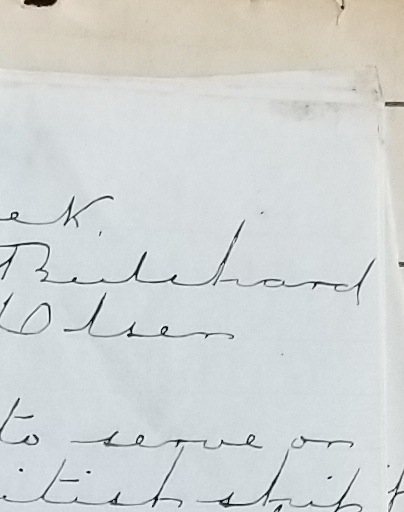 eek
Pritchard
Olsen
to serve on
itish ship f